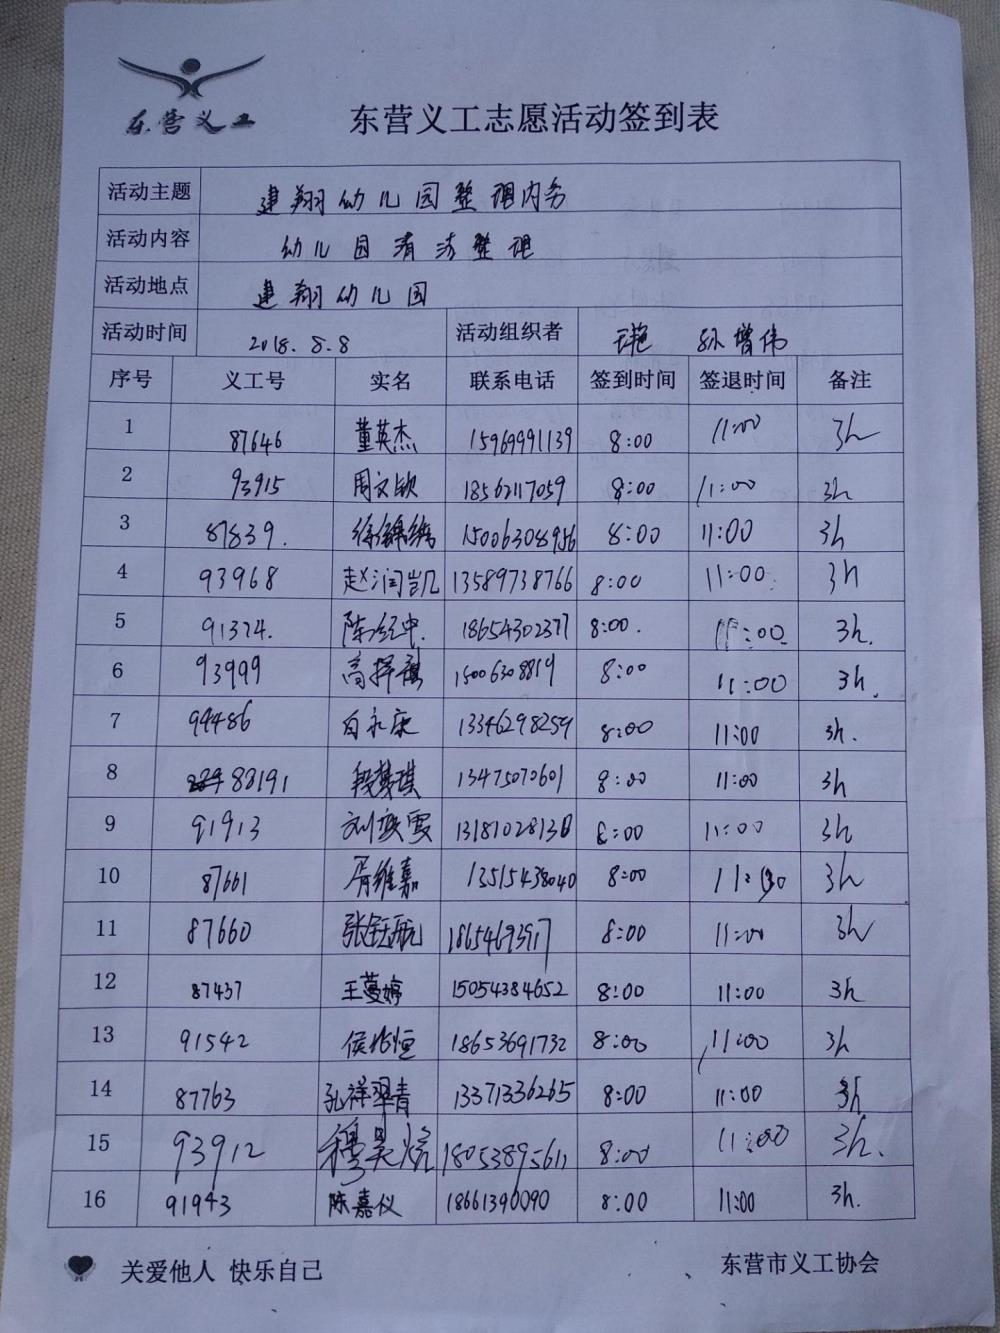 东营义工
东营义工志愿活动签到表
活动主题 建翔幼儿园整理内务
活动内容 幼儿园清洁整理
活动地点 建翔幼儿园
活动时间 2018.8.8 活动组织者 王艳 孙增伟
序号 义工号 实名 联系电话 签到时间 签退时间 备注
1 87646 董英杰 15969991139 8:00 11:00 3h
2 93915 周文欽 18562117059 8:00 11:00 3h
3 87839. 徐锦绣 15006308956 8:00 11:00 3h
4 93968 赵润凯 13589738766 8:00 11:00 3h
5 91374. 陈冶中. 18654302377 8:00. 11:00 3h.
6 93999 高择祺 15006308819 8:00 11:00 3h.
7 94486 白永康 13346298259 8:00 11:00 3h.
8 88191 段梦琪 13475070601 8:00 11:00 3h
9 91913 刘焕雯 13181028138 8:00 11:00 3h
10 87661 胥维嘉 13515438040 8:00 11:00 3h
11 87660 张钰航 18654693917 8:00 11:00 3h
12 87437 王蔓婷 15054384652 8:00 11:00 3h
13 91542 侯兆恒 18653691732 8:00 11:00 3h
14 87763 孔祥翠青 13371336265 8:00 11:00 3h
15 93912 穆昊焓 18053895611 8:00 11:00 3h.
16 91943 陈嘉仪 18661390090 8:00 11:00 3h.
关爱他人 快乐自己 东营市义工协会